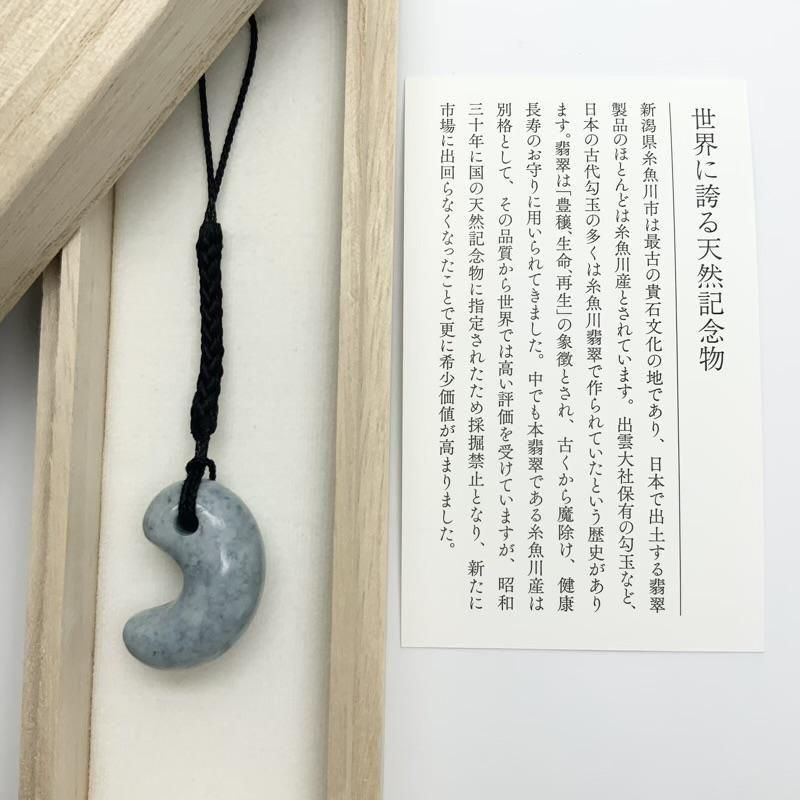 世界に誇る天然記念物
新潟県糸魚川市は最古の貴石文化の地であり、日本で出土する翡翠
製品のほとんどは糸魚川産とされています。出雲大社保有の勾玉など、
日本の古代勾玉の多くは糸魚川翡翠で作られていたという歴史があり
ます。翡翠は「豊穣、生命、再生」の象徴とされ、古くから魔除け、健康
長寿のお守りに用いられてきました。中でも本翡翠である糸魚川産は
別格として、その品質から世界では高い評価を受けていますが、昭和
三十年に国の天然記念物に指定されたため採掘禁止となり、新たに
市場に出回らなくなったことで更に希少価値が高まりました。